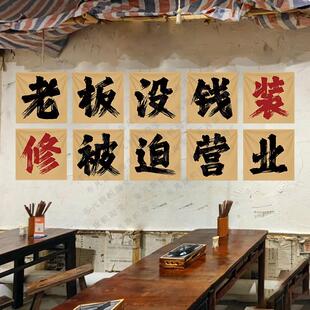 老板没钱装
修被迫营业